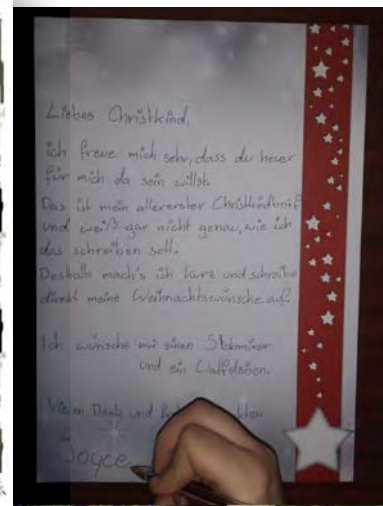 Liebes Christkind,
ich freue mich sehr, dass du heuer
für mich da sein willst.
Das ist mein allererster Christkindbrief
und weiß gar nicht genau, wie ich
das schreiben soll.
Deshalb mach's ich kurz und schreibe
direkt meine Weihnachtswünsche auf:
Ich wünsche mir einen Stabmixer
und ein Waffeleisen.
Vielen Dank und
Joyce